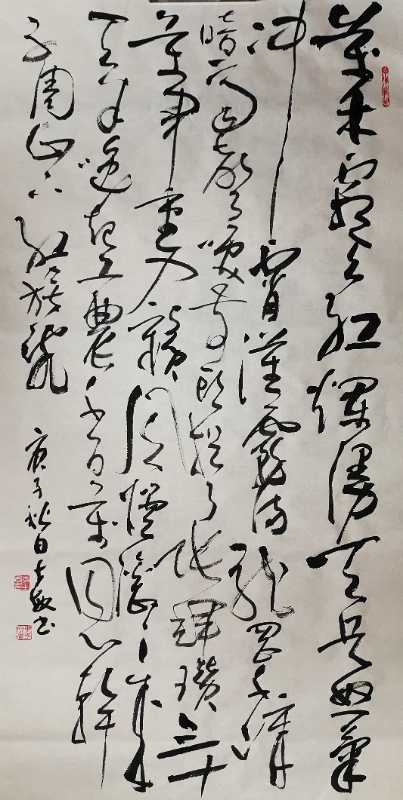 萬木霜天紅爛漫天兵怒氣
沖霄漢霧滿龍岡千嶂
暗齊聲喚前頭捉了張輝瓚二十
萬軍重入贛風煙滾滾來
天半喚起工農千百萬同心幹
不周山下紅旗亂
庚子秋日書